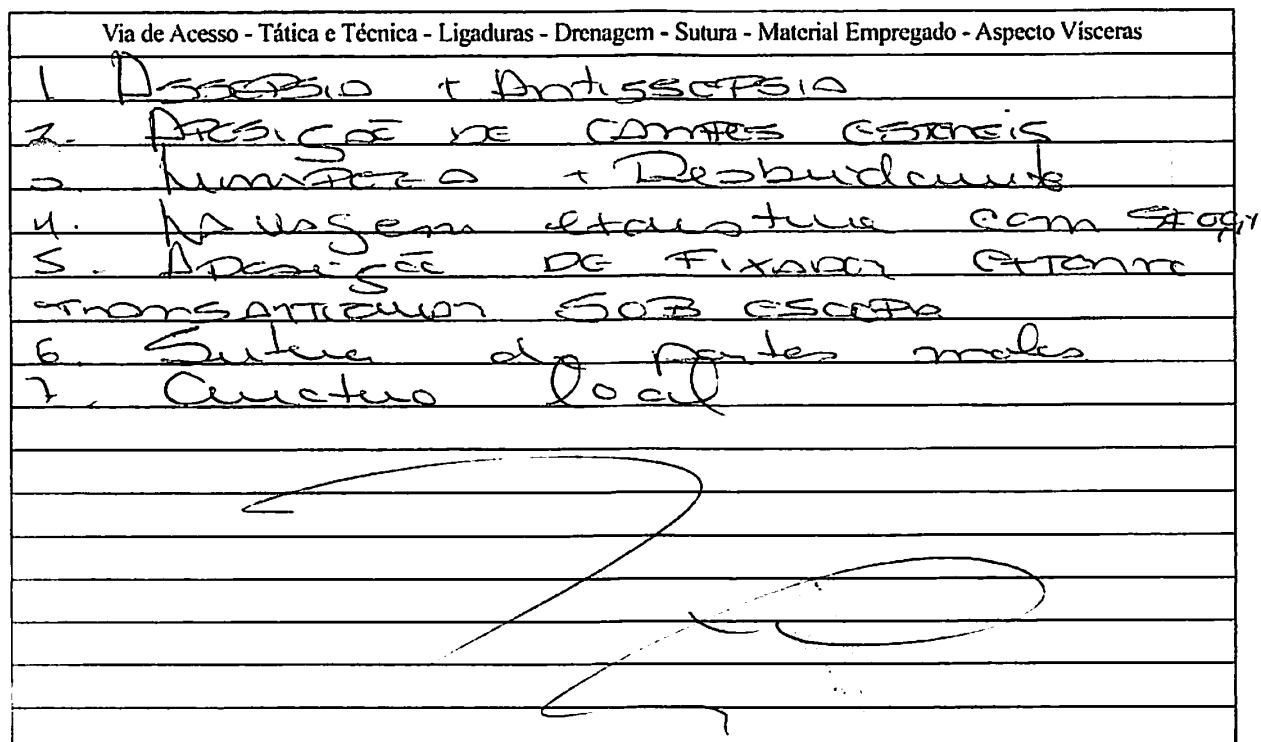 Via de Acesso - Tática e Técnica - Ligaduras - Drenagem - Sutura - Material Empregado - Aspecto Vísceras
1 Assepsia + Antissepsia
2. Aposição de campos estéreis
3. + Desbridamento
4. Lavagem exaustiva com SF 0,9%
5. Aposição de Fixador externo
transarticular sob escopia
6. Sutura de partes moles
7. Curativo local